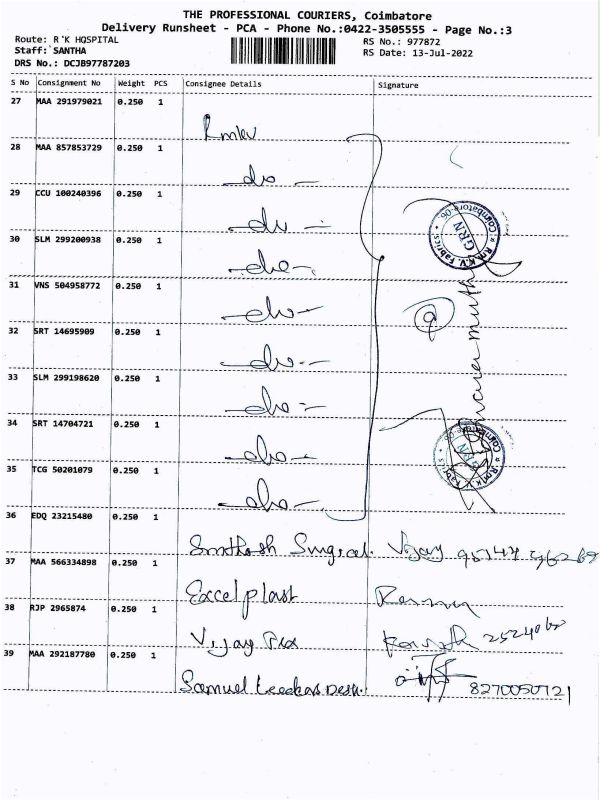 THE PROFESSIONAL COURIERS, Coimbatore
Delivery Runsheet - PCA - Phone No.:0422-3505555 - Page No.:3
Route: R K HOSPITAL RS No.: 977872
Staff: SANTHA RS Date: 13-Jul-2022
DRS No.: DCJB97787203
S No Consignment No Weight PCS Consignee Details Signature
27 MAA 291979021 0.250 1
Rmkv
28 MAA 857853729 0.250 1
do -
29 CCU 100240396 0.250 1
do -
30 SLM 299200938 0.250 1
do -
31 VNS 504958772 0.250 1
do -
32 SRT 14695909 0.250 1
do -
33 SLM 299198620 0.250 1
do -
34 SRT 14704721 0.250 1
do -
35 TCG 50201079 0.250 1
do -
36 EDQ 23215480 0.250 1
Santhosh Surgical. Vijay
37 MAA 566334898 0.250 1
Excel plast
38 RJP 2965874 0.250 1
Vijay Pix
39 MAA 292187780 0.250 1
Samuel 8270050721
Rm.K.V. Fabrics * Coimbatore-06. * GRN
Rm.K.V. Fabrics * Coimbatore-06. * GRN